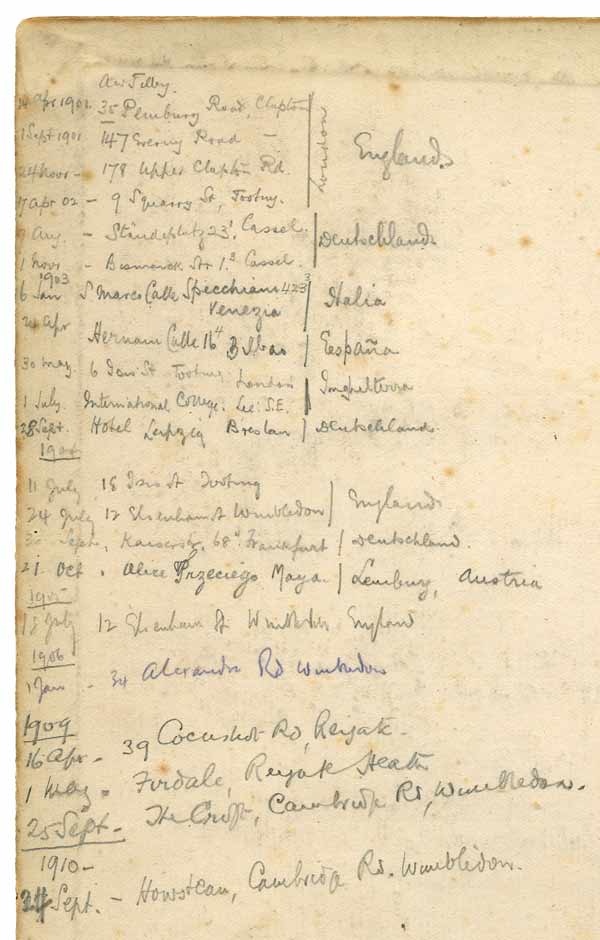 A W Tilby.
24 Apr 1901. 35 Pembury Road, Clapton
1 Sept 1901 147 Evering Road —
24 Novr - 178 Upper Clapton Rd.
London
England
17 Apr 02 - 9 Squarry St, Tooting.
Aug. - Ständeplatz 23 Cassel.
1 Novr - Bismarck Str 1. Cassel.
Deutschland
1903
6 Jan S Marco Calle Specchiani 423
Venezia
Italia
Apr
Hernani Calle 16 Bilbao
España
30 May. 6 St Tooting London
Inghilterra
1 July. International College. Lee: S.E.
28 Sept. Hotel Leipzig Breslau
Deutschland
1904
11 July 18 Isis St Tooting
24 July 12 Elsenham St Wimbledon
England
30 Sept. Kaiserstr. 68 Frankfurt
Deutschland.
21 Oct . Alice Trzeciego Maya.
Lemburg, Austria
1905
July 12 Elsenham St Wimbledon England
1906
1 Jan - 34 Alexandra Rd Wimbledon
1909
16 Apr - 39 Cocushot Rd, Reigate.
1 May - Firdale, Reigate Heath
25 Sept - The Croft, Cambridge Rd, Wimbledon.
1910 -
24 Sept. - Howstean, Cambridge Rd. Wimbledon.